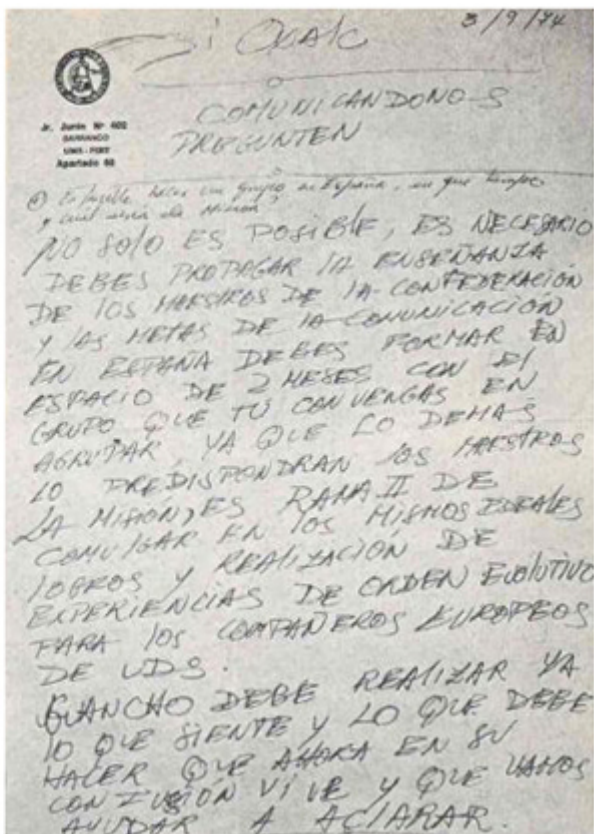 3/9/74
SI OXALC
COMUNICANDONOS
PREGUNTEN
Jr. Junín Nº 402
BARRANCO
LIMA - PERÚ
Apartado 60
Es posible hacer un grupo en España, en que tiempo
y cual seria la Mision?
NO SOLO ES POSIBLE, ES NECESARIO
DEBES PROPAGAR LA ENSEÑANZA
DE LOS MAESTROS DE LA CONFEDERACIÓN
Y LAS METAS DE LA COMUNICACIÓN
EN ESPAÑA DEBES FORMAR EN
ESPACIO DE 2 MESES CON EL
GRUPO QUE TÚ CONVENGAS EN
AGRUPAR, YA QUE LO DEMAS
LO PREDISPONDRAN LOS MAESTROS
LA MISION, ES RAMA II DE
COMULGAR EN LOS MISMOS IDEALES
LOGROS Y REALIZACIÓN DE
EXPERIENCIAS DE ORDEN EVOLUTIVO
PARA LOS COMPAÑEROS EUROPEOS
DE UDS.
GUANCHO DEBE REALIZAR YA
LO QUE SIENTE Y LO QUE DEBE
HACER QUE AHORA EN SU
CONFUSIÓN VIVE Y QUE VAMOS
AYUDAR A ACLARAR.